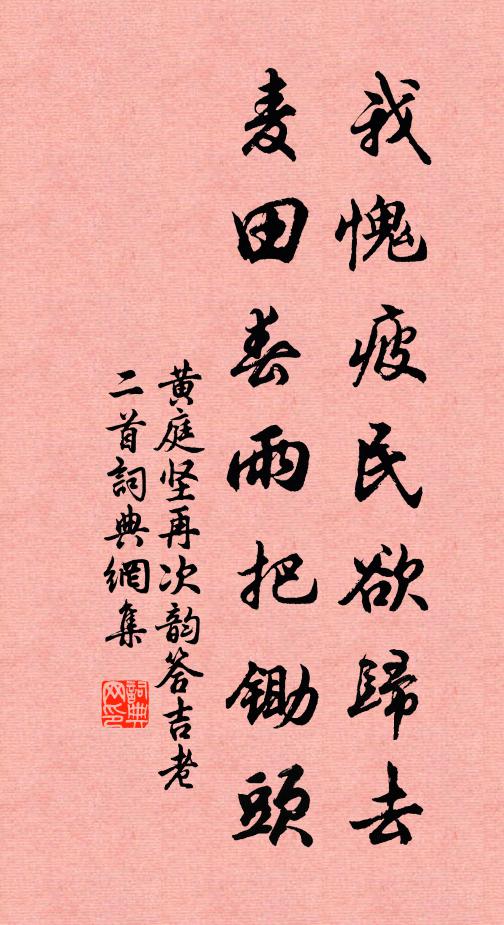 我愧疲民欲歸去
麦田春雨把鋤頭
黄庭坚再次韵答吉老
二首詞典網集
詞典
网印